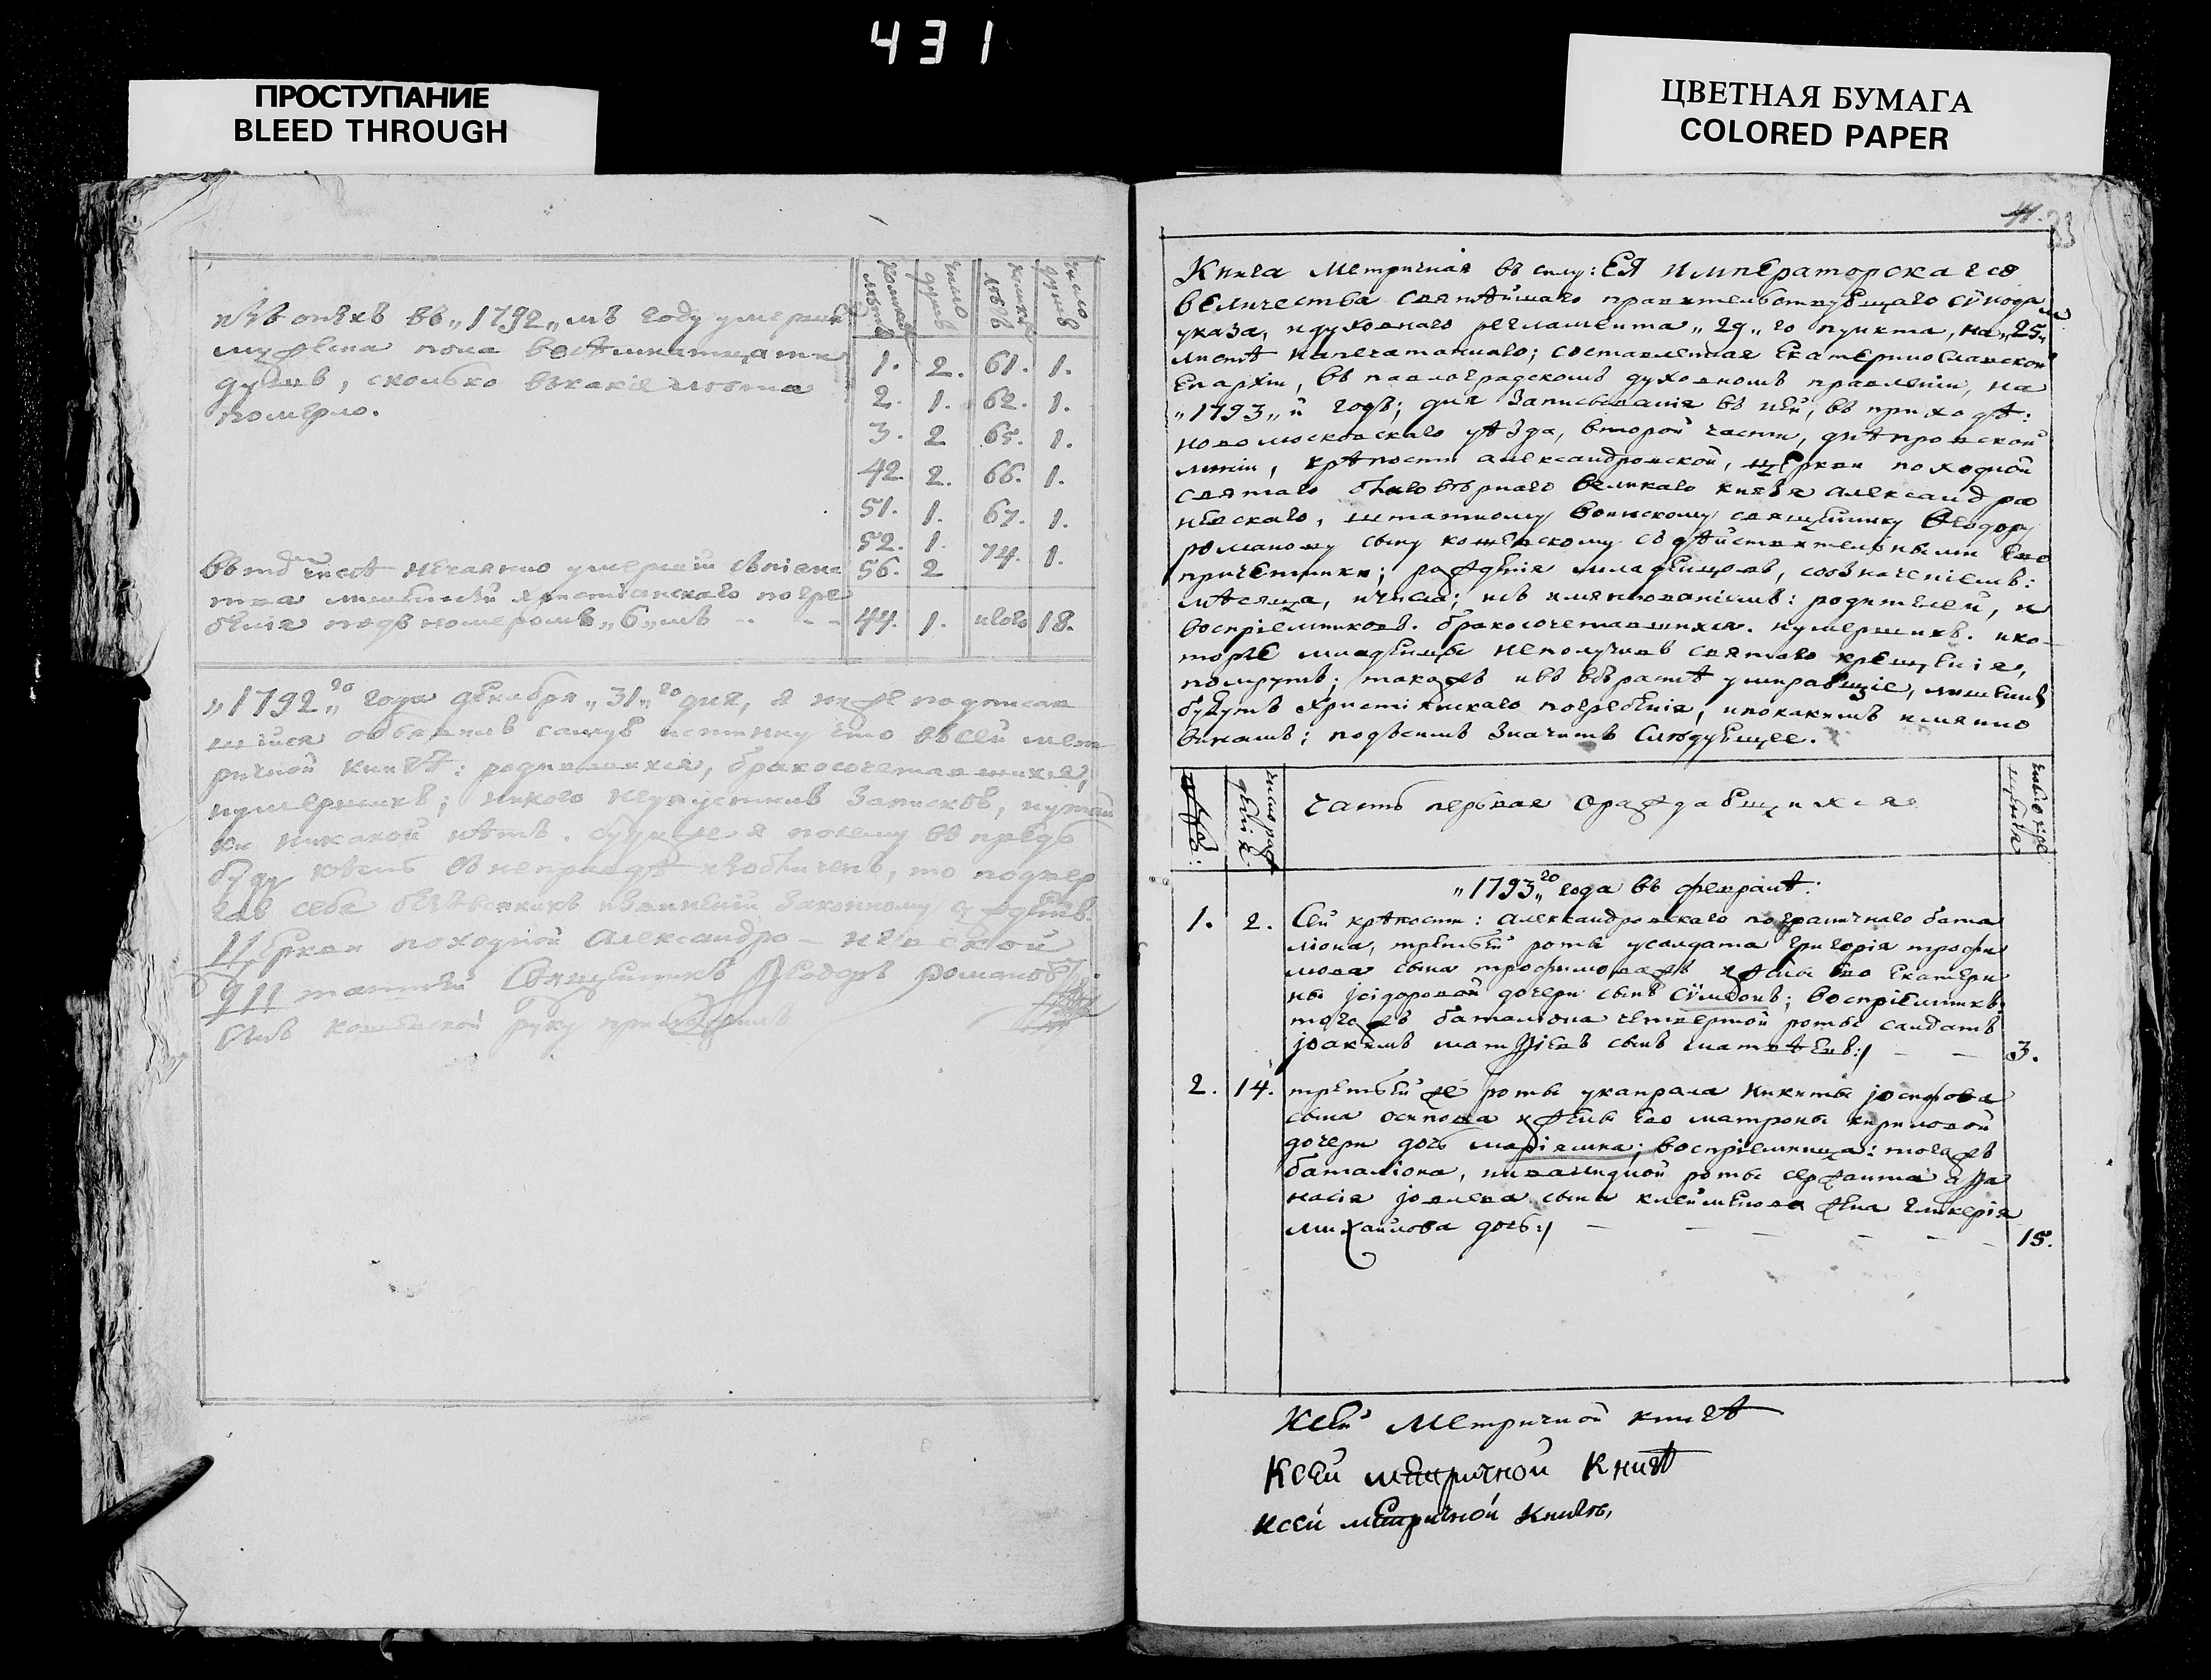 431
ПРОСТУПАНИЕ
BLEED THROUGH
ЦВЕТНАЯ БУМАГА
COLORED PAPER
изъ онѣхъ въ „1792„ мъ году умерши
мужеска пола восѣмнатцати
душъ, сколько въкакіе лѣта
померло.
число
душъ
число
душъ
1. 2. 61. 1.
2. 1. 62. 1.
3. 2 65. 1.
42. 2. 66. 1.
51. 1. 67. 1.
52. 1. 74. 1.
56. 2
въ числѣ нечаянно умершій
христіанскаго погре
бенія подъ номеромъ „6„ мъ - - - 44. 1. итого 18.
„1792„ го года декабря „31„ го дня, я нижеподписав
шійся объявилъ самую истинну что въсей мет
ричной книгѣ: родившихся, бракосочетавшихся,
иумершихъ; никого неупустилъ записать, иутай
ки никакой нѣтъ. будеже я посему въ предь
буду въ неправдѣ изобличенъ, то подвер
гаю себя безъ всякихъ извиненій законному
Церкви походной Александро-Невской
штатный Священникъ Ѳеодоръ романовъ
сынъ руку приложилъ
11. 33
Книга Метричная въ силу: ЕЯ императорскаго
величества святѣйшаго правительствующаго сѵнода
указа, идуховнаго регламента „29„ го пункта, на „25„
листѣ напечатаннаго; составленная Екатеринославской
Епархіи, въ павлоградскомъ духовномъ правленіи, на
„1793„ й годъ; для записыванія въ ней, въ приходѣ:
новомосковскаго уѣзда, второй части, днѣпровской
линіи, крѣпости александровской, церкви походной
святаго благовѣрнаго великаго князя александра
невскаго, штатному воинскому священнику Ѳеодору
романову сыну съдѣйствительными его
причетники; рождения младенцовъ, соозначеніемъ:
мѣсяца, ичисла; исъ имянованіемъ: родителей, и
воспріемниковъ. бракосочетавшихся. иумершихъ. ико-
торые младенцы неполучивъ святаго крещенія,
помрутъ; такожъ ивъ возрастѣ умиравшіе, лишены
будутъ христіянскаго погребенія, ипокакимъ имянно
винамъ; подъсимъ значитъ слѣдуещее.
число рож
денія.
часть первая оражда ещихся
число кре
щенія
„1793„ го года въ февралѣ:
1. 2. Сей крѣпости: александровскаго пограничнаго бата
ліона, третьей роты усалдата григорія трофи
мова сына трофимова и жены его екатери
ны јсідоровой дочери сынъ сѵмеонъ; воспріемникъ
того жъ баталіона четвертой роты салдатъ
јоакимъ матѳіевъ сынъ матвѣевъ:/ - - 3.
2. 14. третьей же роты укапрала никиты јосифова
сына осипова и жены его матроны кириловой
дочери дочь маріямна; воспріемница: тогожъ
баталіона, инвалидной роты сержанта аѳа
насія јовлева сына клейменова жена гликерія
михаилова дочь:/ - - - - - 15.
Ксей Метричной книгѣ
Ксей метричной Книгѣ
ксей метричной книгѣ,